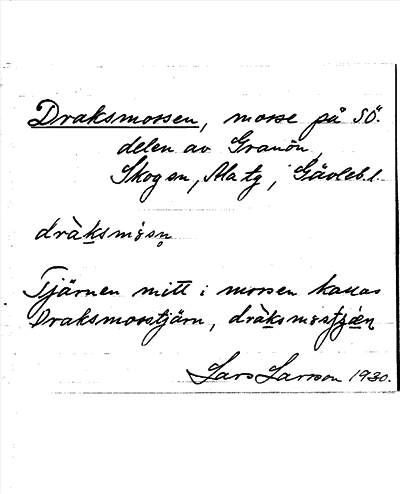 Draksmossen, mosse på SÖ.
delen av Granön,
Skogen, Alfta, Gävleb.l.
dràksms̥n
Tjärnen mitt i mossen kallas
Draksmosstjärn,
Lars Larsson 1930.